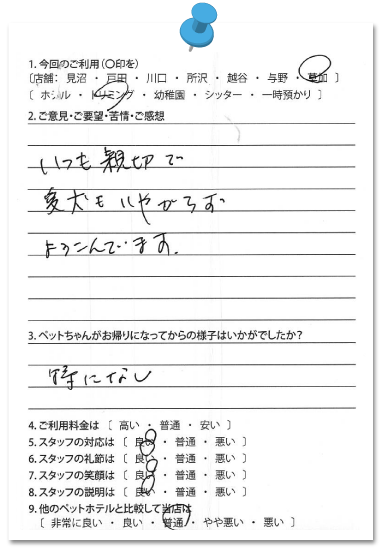 1. 今回のご利用(〇印を)
〔店舗: 見沼 ・ 戸田 ・ 川口 ・ 所沢 ・ 越谷 ・ 与野 ・ 草加 〕
〔 ホテル ・ トリミング ・ 幼稚園 ・ シッター ・ 一時預かり 〕
2. ご意見・ご要望・苦情・ご感想
いつも親切で
愛犬もいやがらず
よろこんでいます.
3. ペットちゃんがお帰りになってからの様子はいかがでしたか?
特になし
4. ご利用料金は 〔 高い ・ 普通 ・ 安い 〕
5. スタッフの対応は 〔 良い ・ 普通 ・ 悪い 〕
6. スタッフの礼節は 〔 良い ・ 普通 ・ 悪い 〕
7. スタッフの笑顔は 〔 良い ・ 普通 ・ 悪い 〕
8. スタッフの説明は 〔 良い ・ 普通 ・ 悪い 〕
9. 他のペットホテルと比較して当店は
〔 非常に良い ・ 良い ・ 普通 ・ やや悪い ・ 悪い 〕